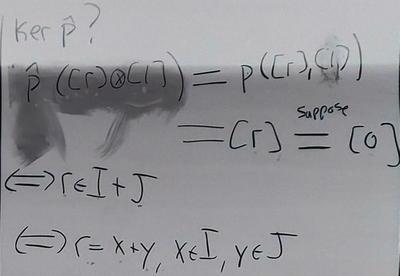 Ker p̂ ?
p̂ ([r]⊗[1]) = p([r],[1])
= [r] suppose = [0]
⟺ r∈I+J
⟺ r=x+y, x∈I, y∈J